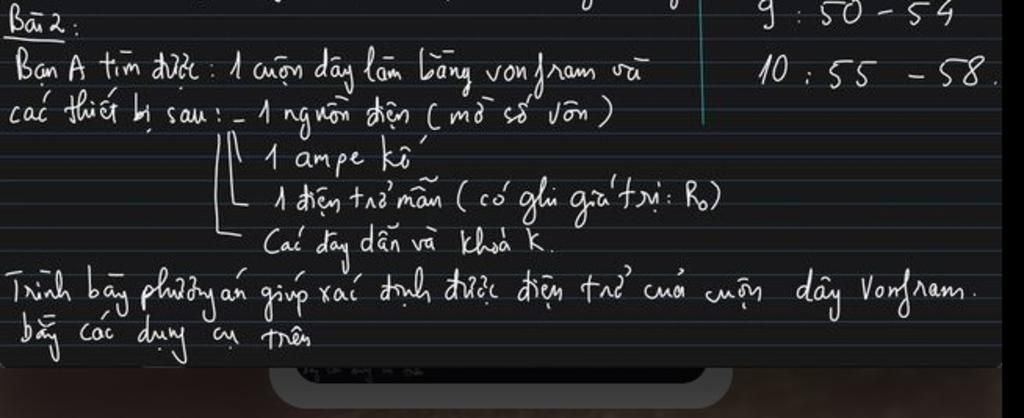 Bài 2:
9 : 50 - 54
Bạn A tìm được : 1 cuộn dây làm bằng vonfram và
10 : 55 - 58.
các thiết bị sau : - 1 nguồn điện (mờ số vôn)
1 ampe kế
1 điện trở mẫu (có ghi giá trị: R₀)
Các dây dẫn và khoá K.
Trình bày phương án giúp xác định được điện trở của cuộn dây Vonfram.
bằng các dụng cụ trên